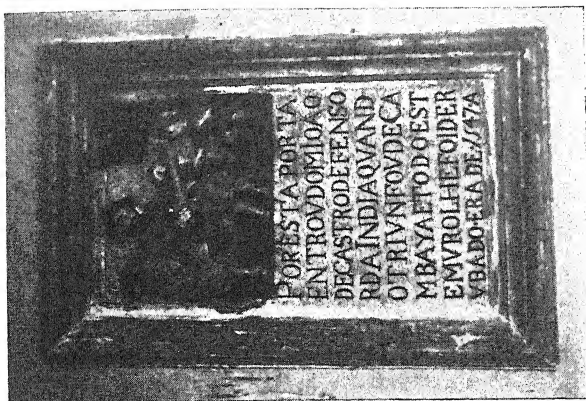 PORESTAPORTA
ENTROVDOMIOÃO
DECASTRODEFENSO
RDAINDIAQVAND
OTRIVNFOVDECA
MBAYAETODOEST
EMVROLHEFOIDER
VBADO·ERADE·1547A